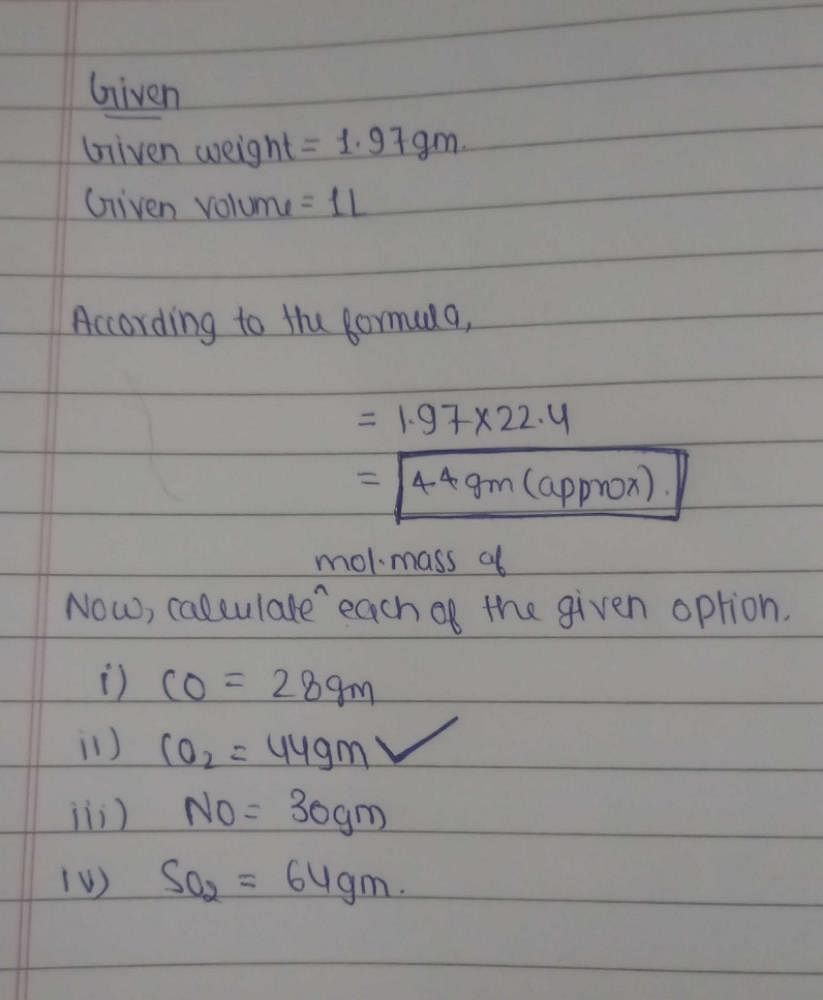 Given
Given weight = 1.97gm.
Given volume = 1L
According to the formula,
= 1.97x22.4
= 44gm (approx).
mol.mass of
Now, calculate ^ each of the given option.
i) CO = 28gm
ii) CO₂ = 44gm ✓
iii) NO = 30gm
iv) SO₂ = 64gm.